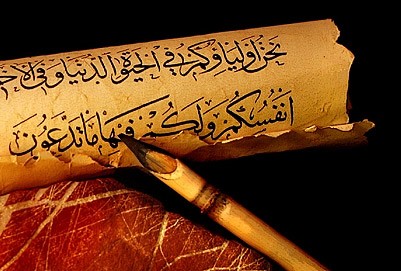 نحن اولياؤكم في الحيوة الدنيا و في الاخ
انفسكم ولكم فيها ما تدعون